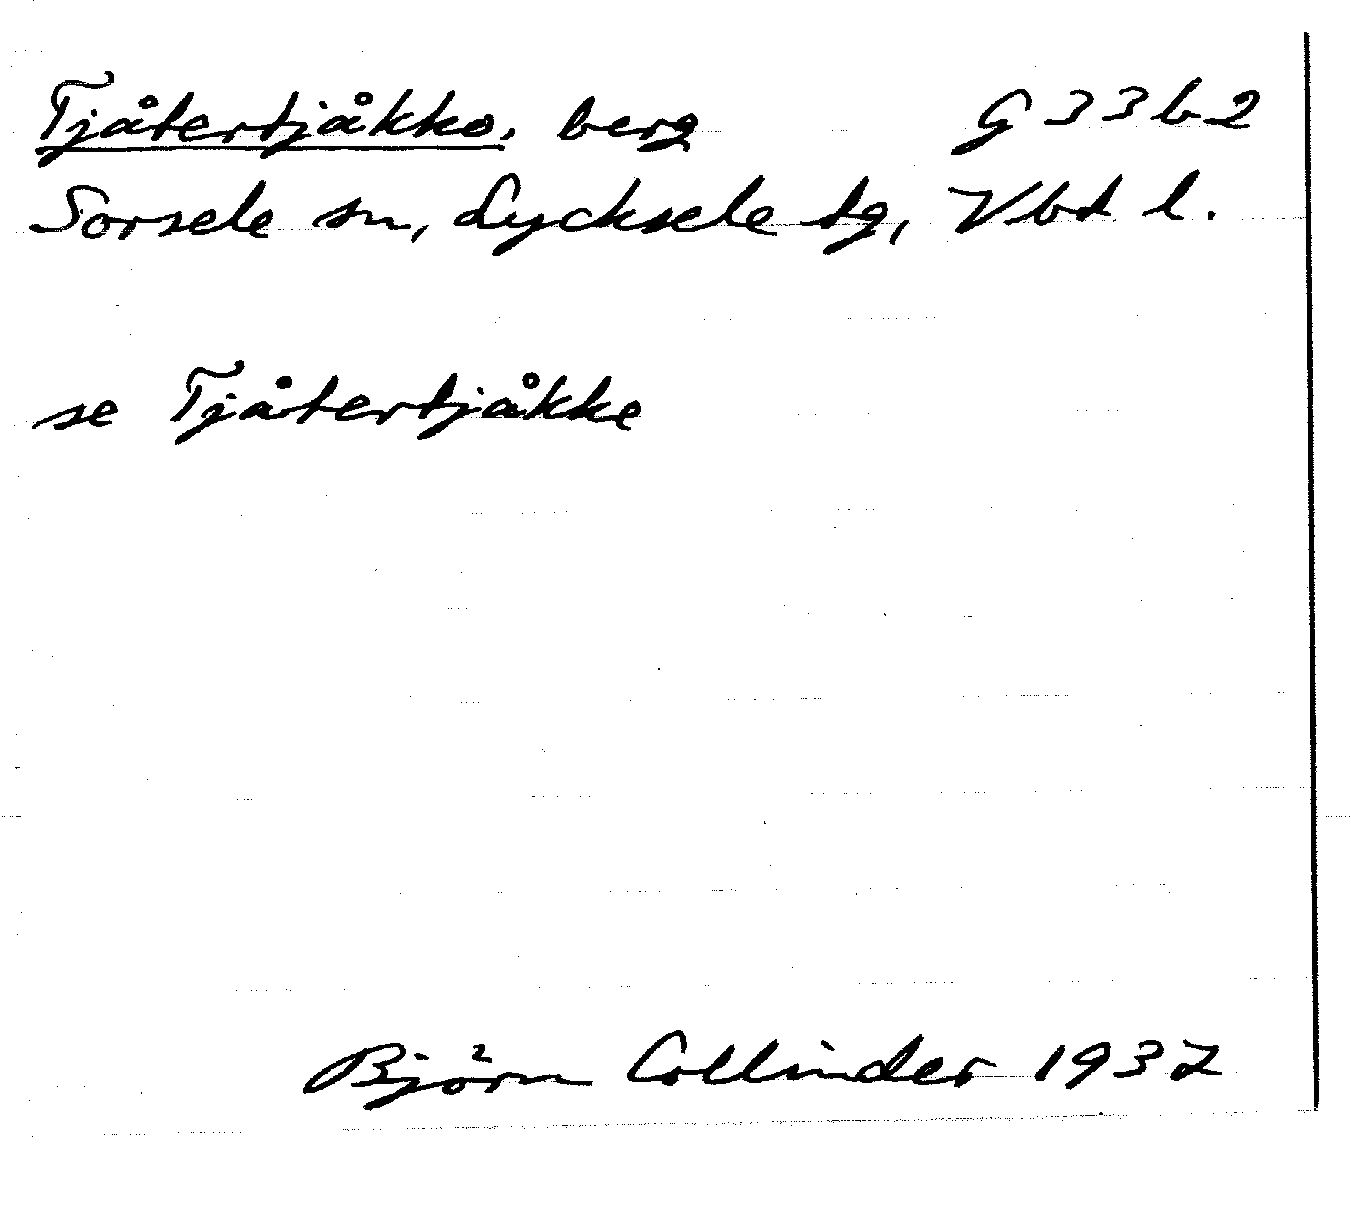 Tjåtertjåkko, berg G33b2
Sorsele sn, Lycksele tg, Vbt l.
se Tjåtertjåkke
Björn Collinder 1932